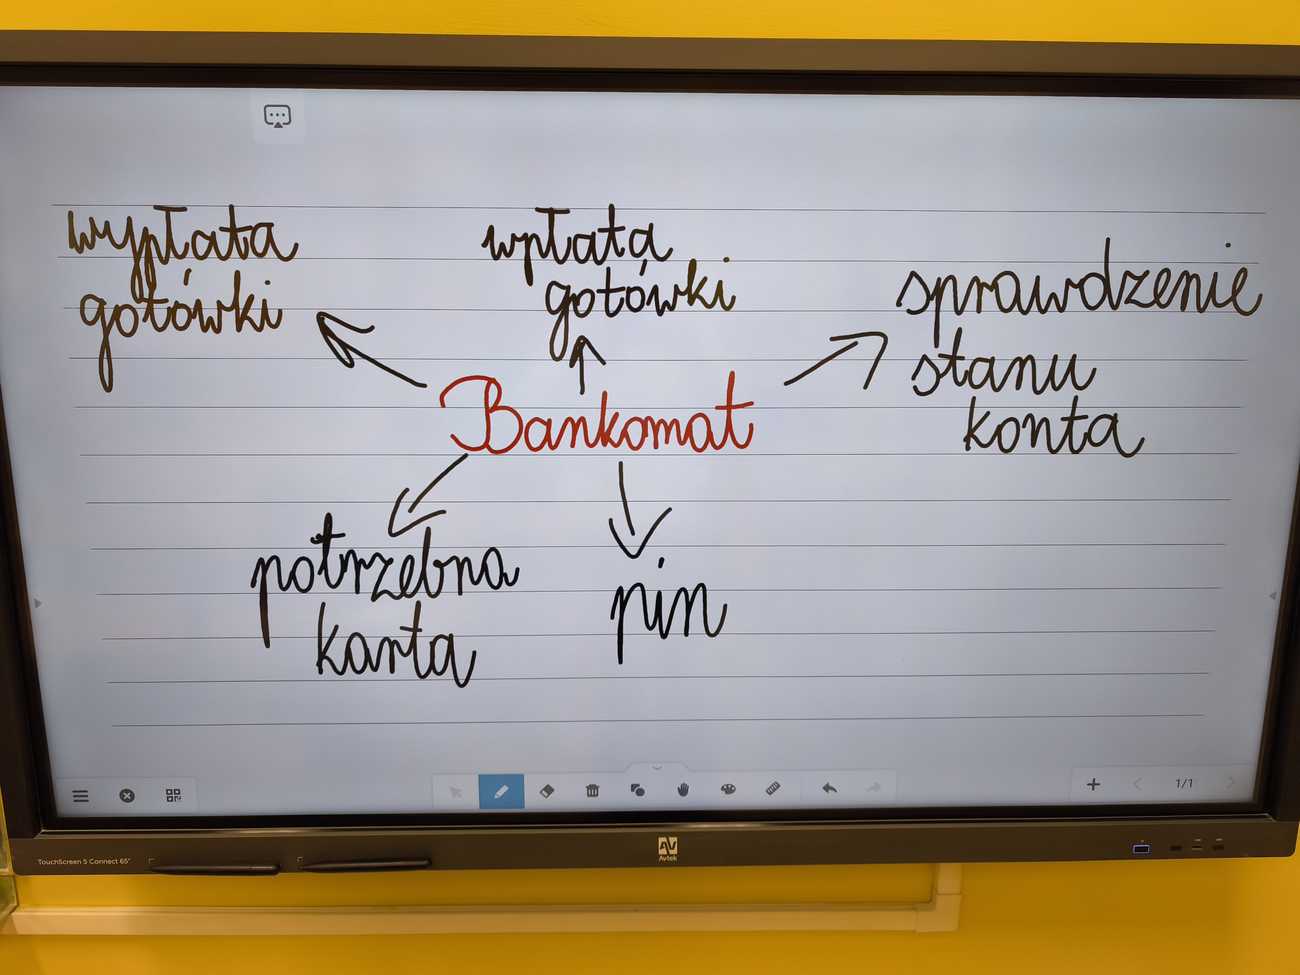 wypłata
gotówki
wpłata
gotówki
sprawdzenie
stanu
konta
Bankomat
potrzebna
karta
pin
1/1
TouchScreen 5 Connect 65"
Avtek